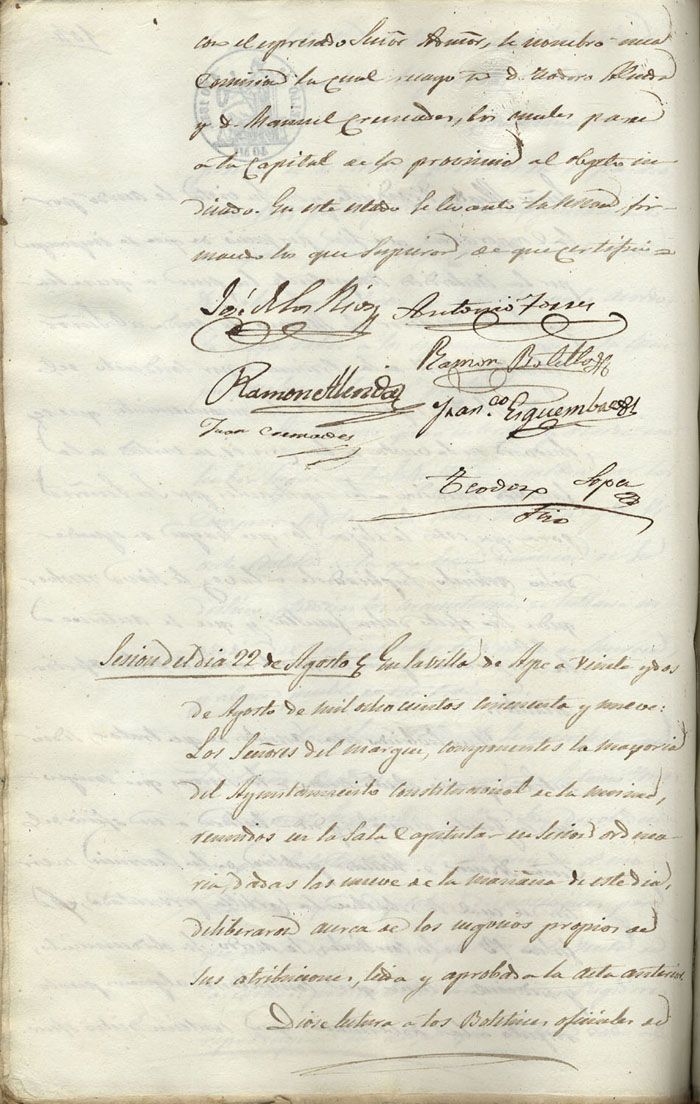 con el espresado Señor Admor, se nombro una
Comision la cual recayo en D. Teodoro Alenda
y D. Manuel Cremades, los cuales pasen
a la Capital de la provincia al objeto in-
dicado. En este estado se levanto la sesion fir-
mando los que supieron, de que certifico =
José de los Rios Antonio Torres
Ramon Botella
Ramon Alenda
Franco Esquembre
Juan Cremades
Teodoro
Srio
Sesion del dia 22 de Agosto En la villa de Aspe a veinte y dos
de Agosto de mil ochocientos cincuenta y nueve:
Los Señores del margen, componentes la mayoria
del Ayuntamiento Constitucional de la misma,
reunidos en la Sala Capitular en sesion ordina-
ria, dadas las nueve de la mañana de este dia,
deliberaron acerca de los negocios propios de
sus atribuciones, leida y aprobada la acta anterior.
Diose lectura a los Boletines oficiales de